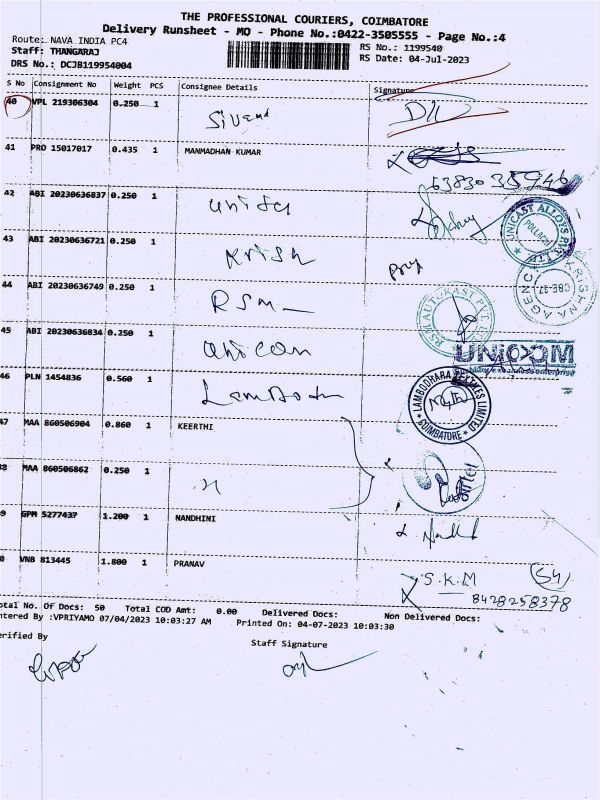 THE PROFESSIONAL COURIERS, COIMBATORE
Delivery Runsheet - MO - Phone No.:0422-3505555 - Page No.:4
Route: NAVA INDIA PC4
RS No.: 1199540
Staff: THANGARAJ
RS Date: 04-Jul-2023
DRS No.: DCJB119954004
S No Consignment No Weight PCS Consignee Details Signature
40 VPL 219306304 0.250 1
41 PRO 15017017 0.435 1 MANMADHAN KUMAR
42 ABI 20230636837 0.250 1 unisu
UNICAST ALLOYS PVT LTD
43 ABI 20230636721 0.250 1 Krish
KRISHNA AGENC
CBE-37
44 ABI 20230636749 0.250 1 RSM
RSM AUTOKAST PVT LTD
45 ABI 20230636834 0.250 1 unicom
UNIQOM
46 PLN 1454836 0.560 1 Lambodh
LAMBODHARA TEXTILES LIMITED
COIMBATORE
47 MAA 860506904 0.860 1 KEERTHI
38 MAA 860506862 0.250 1
9 GPM 5277437 1.200 1 NANDHINI
0 VNB 813445 1.800 1 PRANAV
S.K.M
8428258378
otal No. Of Docs: 50 Total COD Amt: 0.00 Delivered Docs: Non Delivered Docs:
ntered By :VPRIYAMO 07/04/2023 10:03:27 AM Printed On: 04-07-2023 10:03:30
erified By
Staff Signature